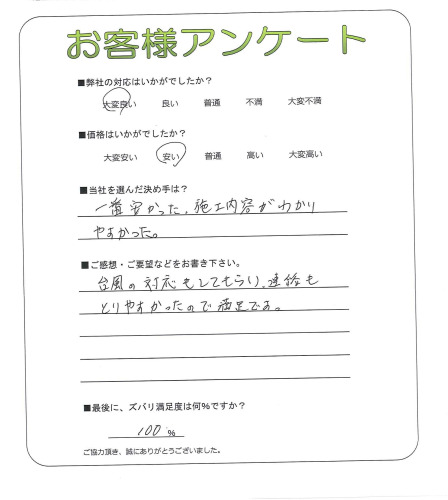 お客様アンケート
■弊社の対応はいかがでしたか？
大変良い 良い 普通 不満 大変不満
■価格はいかがでしたか？
大変安い 安い 普通 高い 大変高い
■当社を選んだ決め手は？
一番安かった、施工内容がわかり
やすかった。
■ご感想・ご要望などをお書き下さい。
台風の対応もしてもらい、連絡も
とりやすかったので満足です。
■最後に、ズバリ満足度は何%ですか？
100 %
ご協力頂き、誠にありがとうございました。